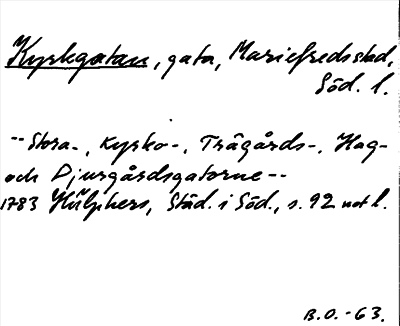 Kyrkgatan, gata, Mariefredsstad,
Söd. l.
-- Stora-, Kyrko-, Trägårds-, Hag-
och Djurgårdsgatorne --
1783 Hülphers, Städ. i Söd., s. 92 not l.
B.O. -63.